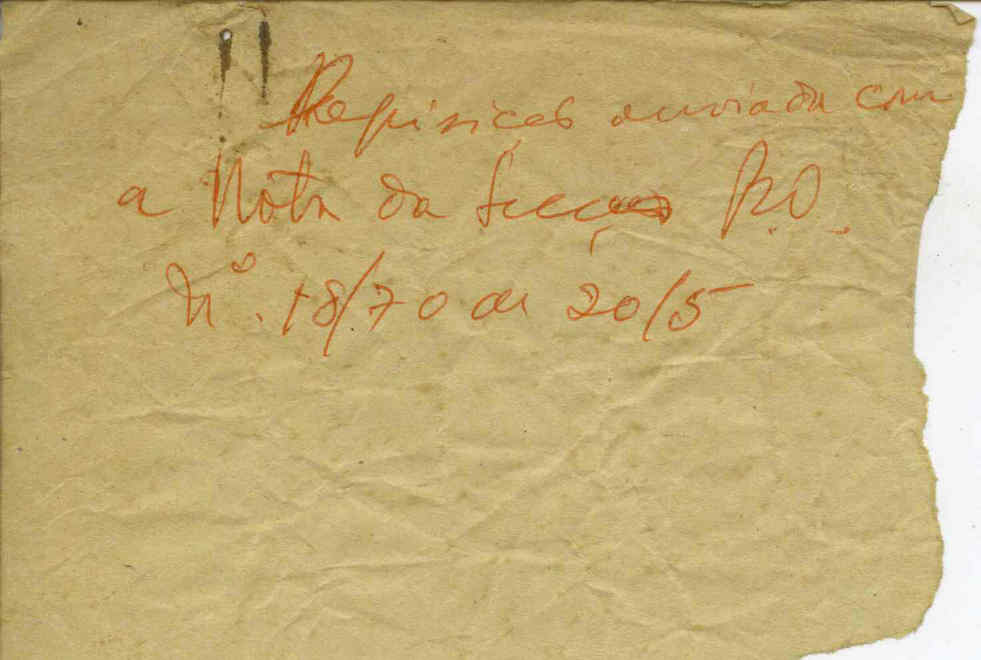 Requisição enviada com
a Nota da Secção P.O.
Nº. 18/70 de 20/5